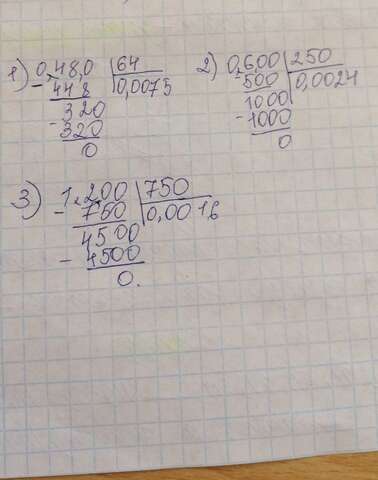 1) 0,48,0 | 64
- 448 | 0,0075
320
- 320
0
2) 0,600 | 250
- 500 | 0,0024
1000
- 1000
0
3) 1,200 | 750
- 750 | 0,0016
4500
- 4500
0.